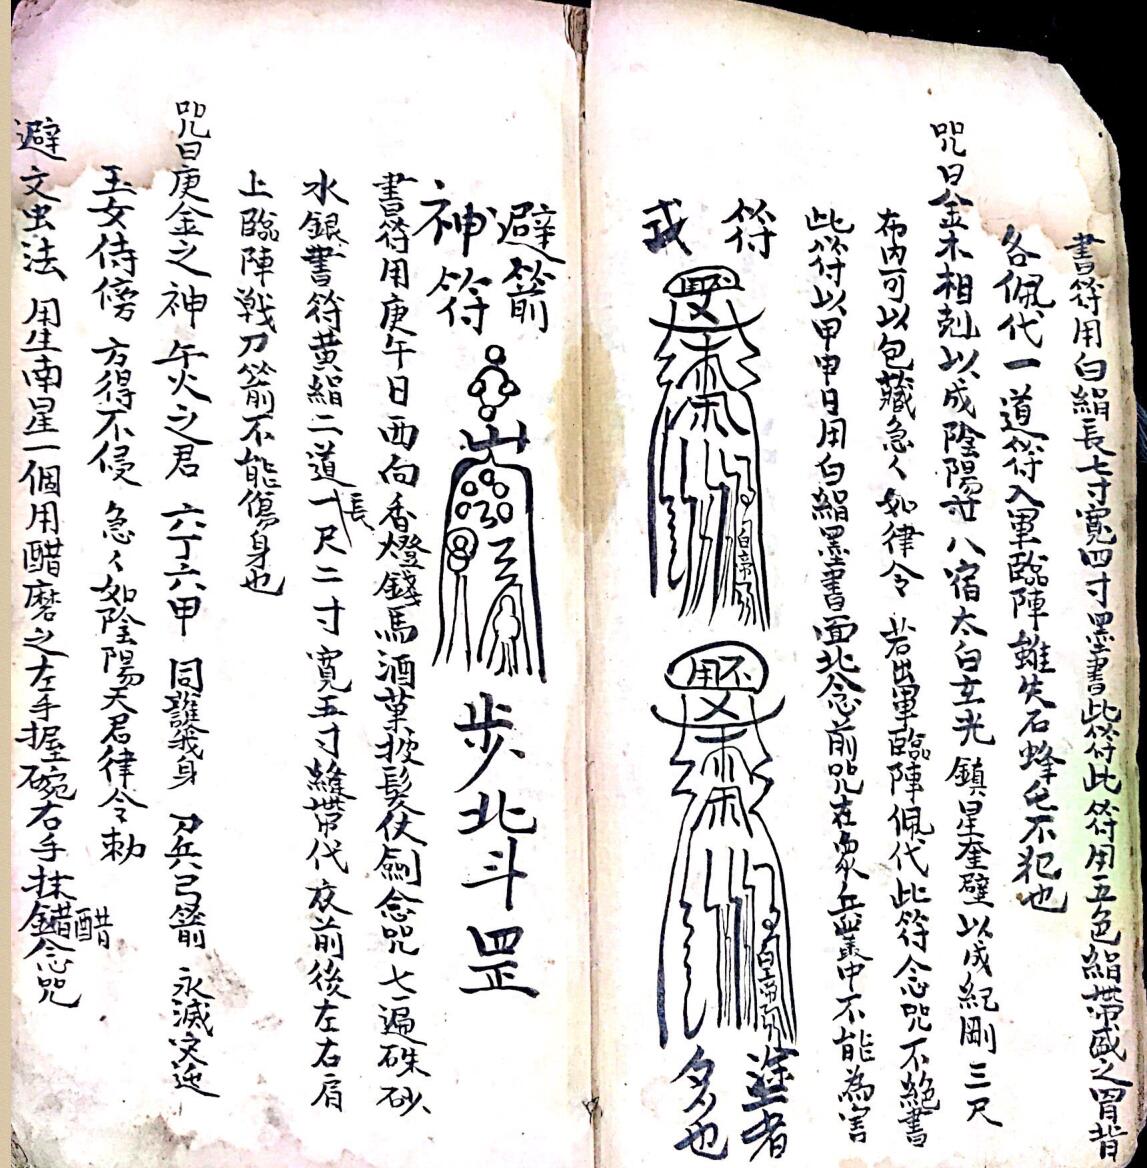 書符用白絹長七寸寬四寸黑書此符此符用五色絹帶盛之胃背
各佩代一道符入軍臨陣雖失石蜂屯不犯也
咒曰金木相剋以成陰陽廿八宿太白玄光鎮星奎壁以成紀剛三尺
布內可以包藏急々如律令 若出軍臨陣佩代此符念咒不絕書
此符以甲申日用白絹黑書面北念前咒在眾兵叢中不能為害
符
或
塗者
多也
避箭
神符
步北斗罡
書符用庚午日西向香燈錢馬酒菓披髮仗劍念咒七遍硃砂
水銀書符黃絹二道長一尺二寸寬五寸縫帶代衣前後左右肩
上臨陣戰刀箭不能傷身也
咒曰庚金之神 午火之君 六丁六甲 同護我身 刀兵弓箭 永滅災迍
玉女侍傍 方得不侵 急々如陰陽天君律令勅
避文虫法 用生南星一個用醋磨之左手握碗右手抹醋念咒